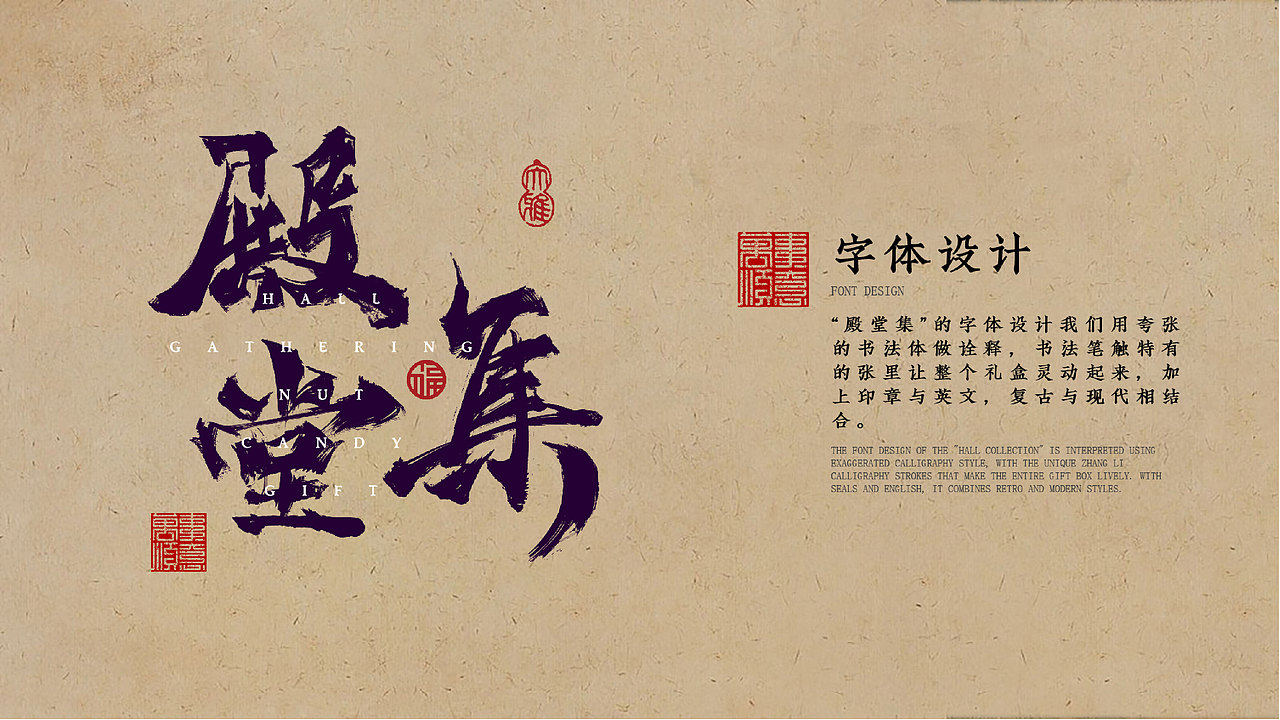 殿
堂
集
HALL
GATHERING
NUT
CANDY
GIFT
大雅
福
字体设计
FONT DESIGN
“殿堂集”的字体设计我们用夸张
的书法体做诠释，书法笔触特有
的张里让整个礼盒灵动起来，加
上印章与英文，复古与现代相结
合。
THE FONT DESIGN OF THE "HALL COLLECTION" IS INTERPRETED USING
EXAGGERATED CALLIGRAPHY STYLE, WITH THE UNIQUE ZHANG LI
CALLIGRAPHY STROKES THAT MAKE THE ENTIRE GIFT BOX LIVELY. WITH
SEALS AND ENGLISH, IT COMBINES RETRO AND MODERN STYLES.